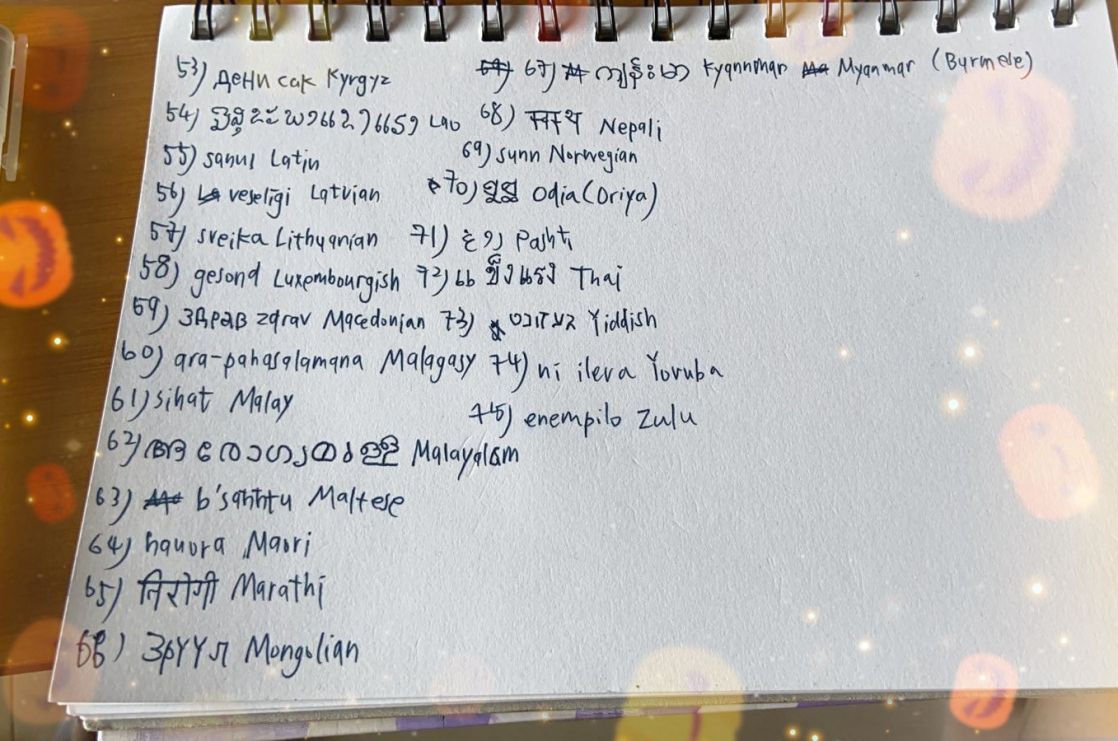 53) дени сак Kyrgyz
54) Lao
55) sanus Latin
56) veselīgi Latvian
57) sveika Lithuanian
58) gesond Luxembourgish
59) здрав zdrav Macedonian
60) ara-pahasalamana Malagasy
61) sihat Malay
62) ആരോഗ്യമുള്ള Malayalam
63) b'saħħtu Maltese
64) hauora Maori
65) निरोगी Marathi
66) эрүүл Mongolian
67) ကျန်းမာ Kyannmar Myanmar (Burmele)
68) स्वस्थ Nepali
69) sunn Norwegian
70) Odia (Oriya)
71) Pashti
72) แข็งแรง Thai
73) געזונט Yiddish
74) ni ilera Yoruba
75) enempilo Zulu